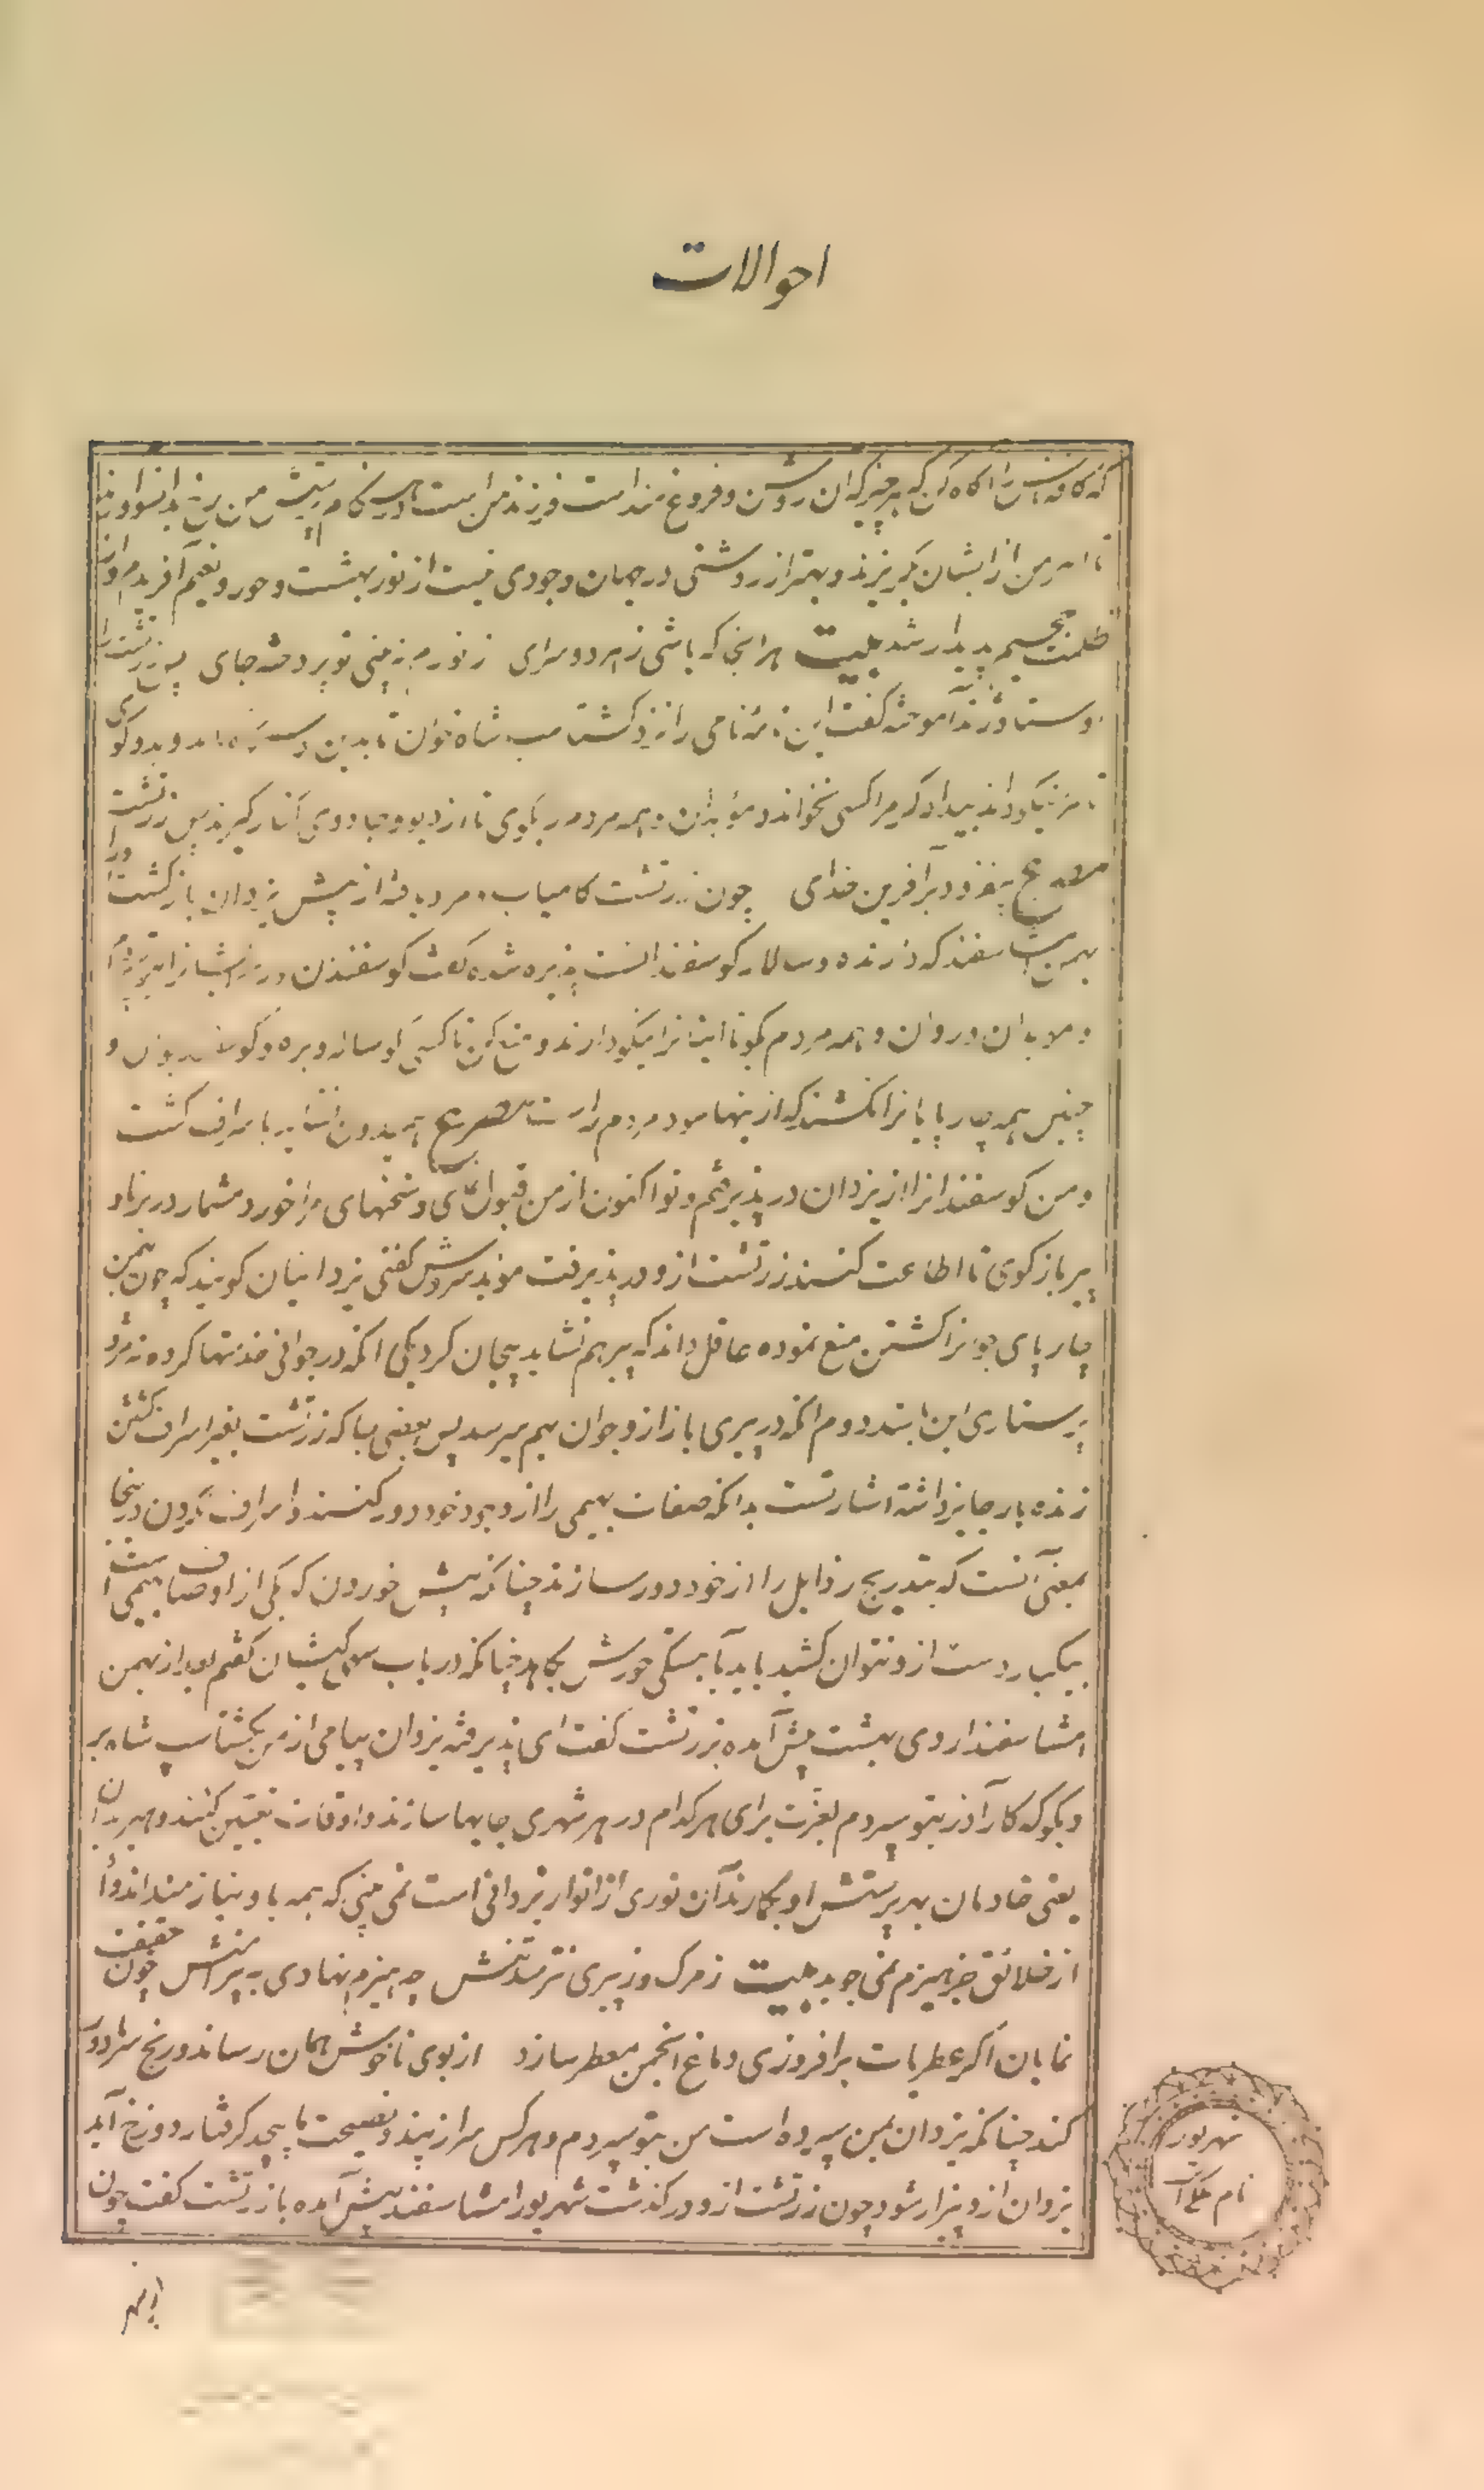 احوالات
که کافه را آگاه کن که هر چیز که آن روشن و فروغ مندست فروغ من است
از ایشان بگریزند و بهتر از روشنی در جهان وجودی نیست از نور بهشت و حور و نعیم آفریدم و از
ظلمت جحیم پدیدار شد بیت هر انجا که باشی ز هر دو سرای ز نور من نه بینی تو پردخته جای پس زرتشت را
وستا و ژند آموخته گفت این نامه نامی را نزد گشتاسب شاه خوان تا بدین و بدو گوی
نیکو داند بیدادگر مرا کسی نخواند و موبدان و همه مردم را بگوی تا از دیو و جادوی کنار گیرند پس زرتشت
مصرع بیفزود بر آفرین خدای چون زرتشت کامیاب و مراد یافته از پیش یزدان بازگشت او را
بهمن امشاسفند که دارنده و سالار گوسفندانست پذیره شده گفت گوسفندان و رمه
و موبدان و ردان و همه مردم بگو تا اینانرا نیکو دارند و منع کن تا کسی گوساله و بره و گوسفند جوان و
چنین همه چارپایانرا نکشند که از ینها سود مردم راست مصرع همیدون نشاید باسراف کشت
و من گوسفندانرا از یزدان در پذیرفتم و تو اکنون از من قبول کن و سخنهای مرا خورد مشمار در برنا و
پیر بازگوی تا اطاعت کنند زرتشت ازو در پذیرفت موبد سروش گفتی یزدانیان گویند که چون بهمن
چارپای جوانرا کشتن منع نموده عاقل داند که پیر هم نشاید بیجان کرد یکی آنکه در جوانی خدمتها کرده نه مزد
پرستاری این باشد دوم آنکه در پیری باز ازو جوان بهم میرسد پس بعضی جا که زرتشت بغیر اسراف کشتن
زنده بار جایز داشته اشارتست بدانکه صفات بهیمی را از وجود خود دور کنند و اسراف نکردن درینجا
بمعنی آنست که بتدریج رذایل را از خود دور سازند چنانکه بیش خوردن که یکی از اوصاف بهیمی است
بیکبار دست ازو نتوان کشید باید آبستگی خورش بکاهد چنانکه در باب سپاسی کیشیان گفتم بعد از بهمن
امشاسفند اردی بهشت پیش آمده بزرتشت گفت ای پذیرفته یزدان پیامی از من بگشتاسب شاه بر
و بگو که کار آذر بتو سپردم بفرمت برای هر کدام در هر شهری جایها سازند و اوقات تعیین کنند و هیربدان
یعنی خادمان بهر پرستش او بگمارند آن نوری از انوار یزدانی است نمی بینی که همه باو نیازمند اند و او
از خلائق جز هیزم نمی جوید بیت ز مرگ و ز پیری نترسد تنش چو هیزم نهادی به پیرامنش چون حقیقت
نمایان اگر عطریات برافروزی دماغ انجمن معطر سازد از بوی ناخوش همان رساند و رنج سرما دور
کند چنانکه یزدان بمن سپرده است من بتو سپردم و هر کس سر از پند و نصیحت ما پیچد گرفتار دوزخ آید
یزدان ازو بیزار شود چون زرتشت ازو در گذشت شهریور امشاسفند پیش آمده با زرتشت گفت چون
شهریور
نام ملک است